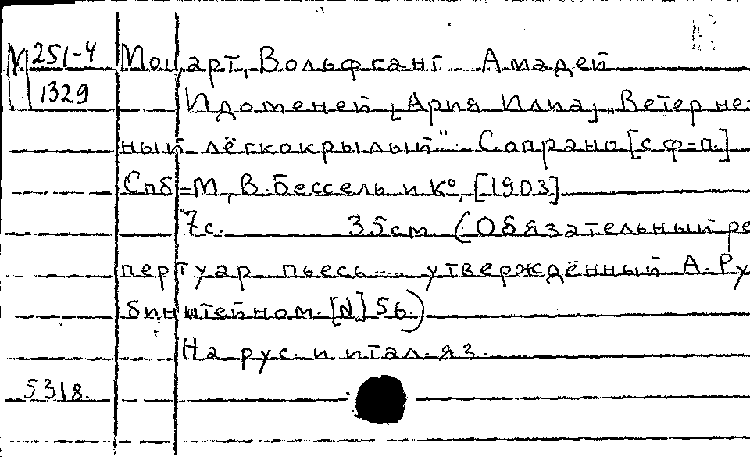 М 251-4
1329
Моцарт, Вольфганг Амадей
Идоменей [Ария Илиа] „Ветер неж-
ный лёгкокрылый" Сопрано [с ф-п.]
Спб-М, В. Бессель и К°, [1903]
7с. 35см (Обязательный ре
пертуар пьесь утверждённый А. Ру
бинштейном. [N] 56)
На рус. и итал. яз.
5318.